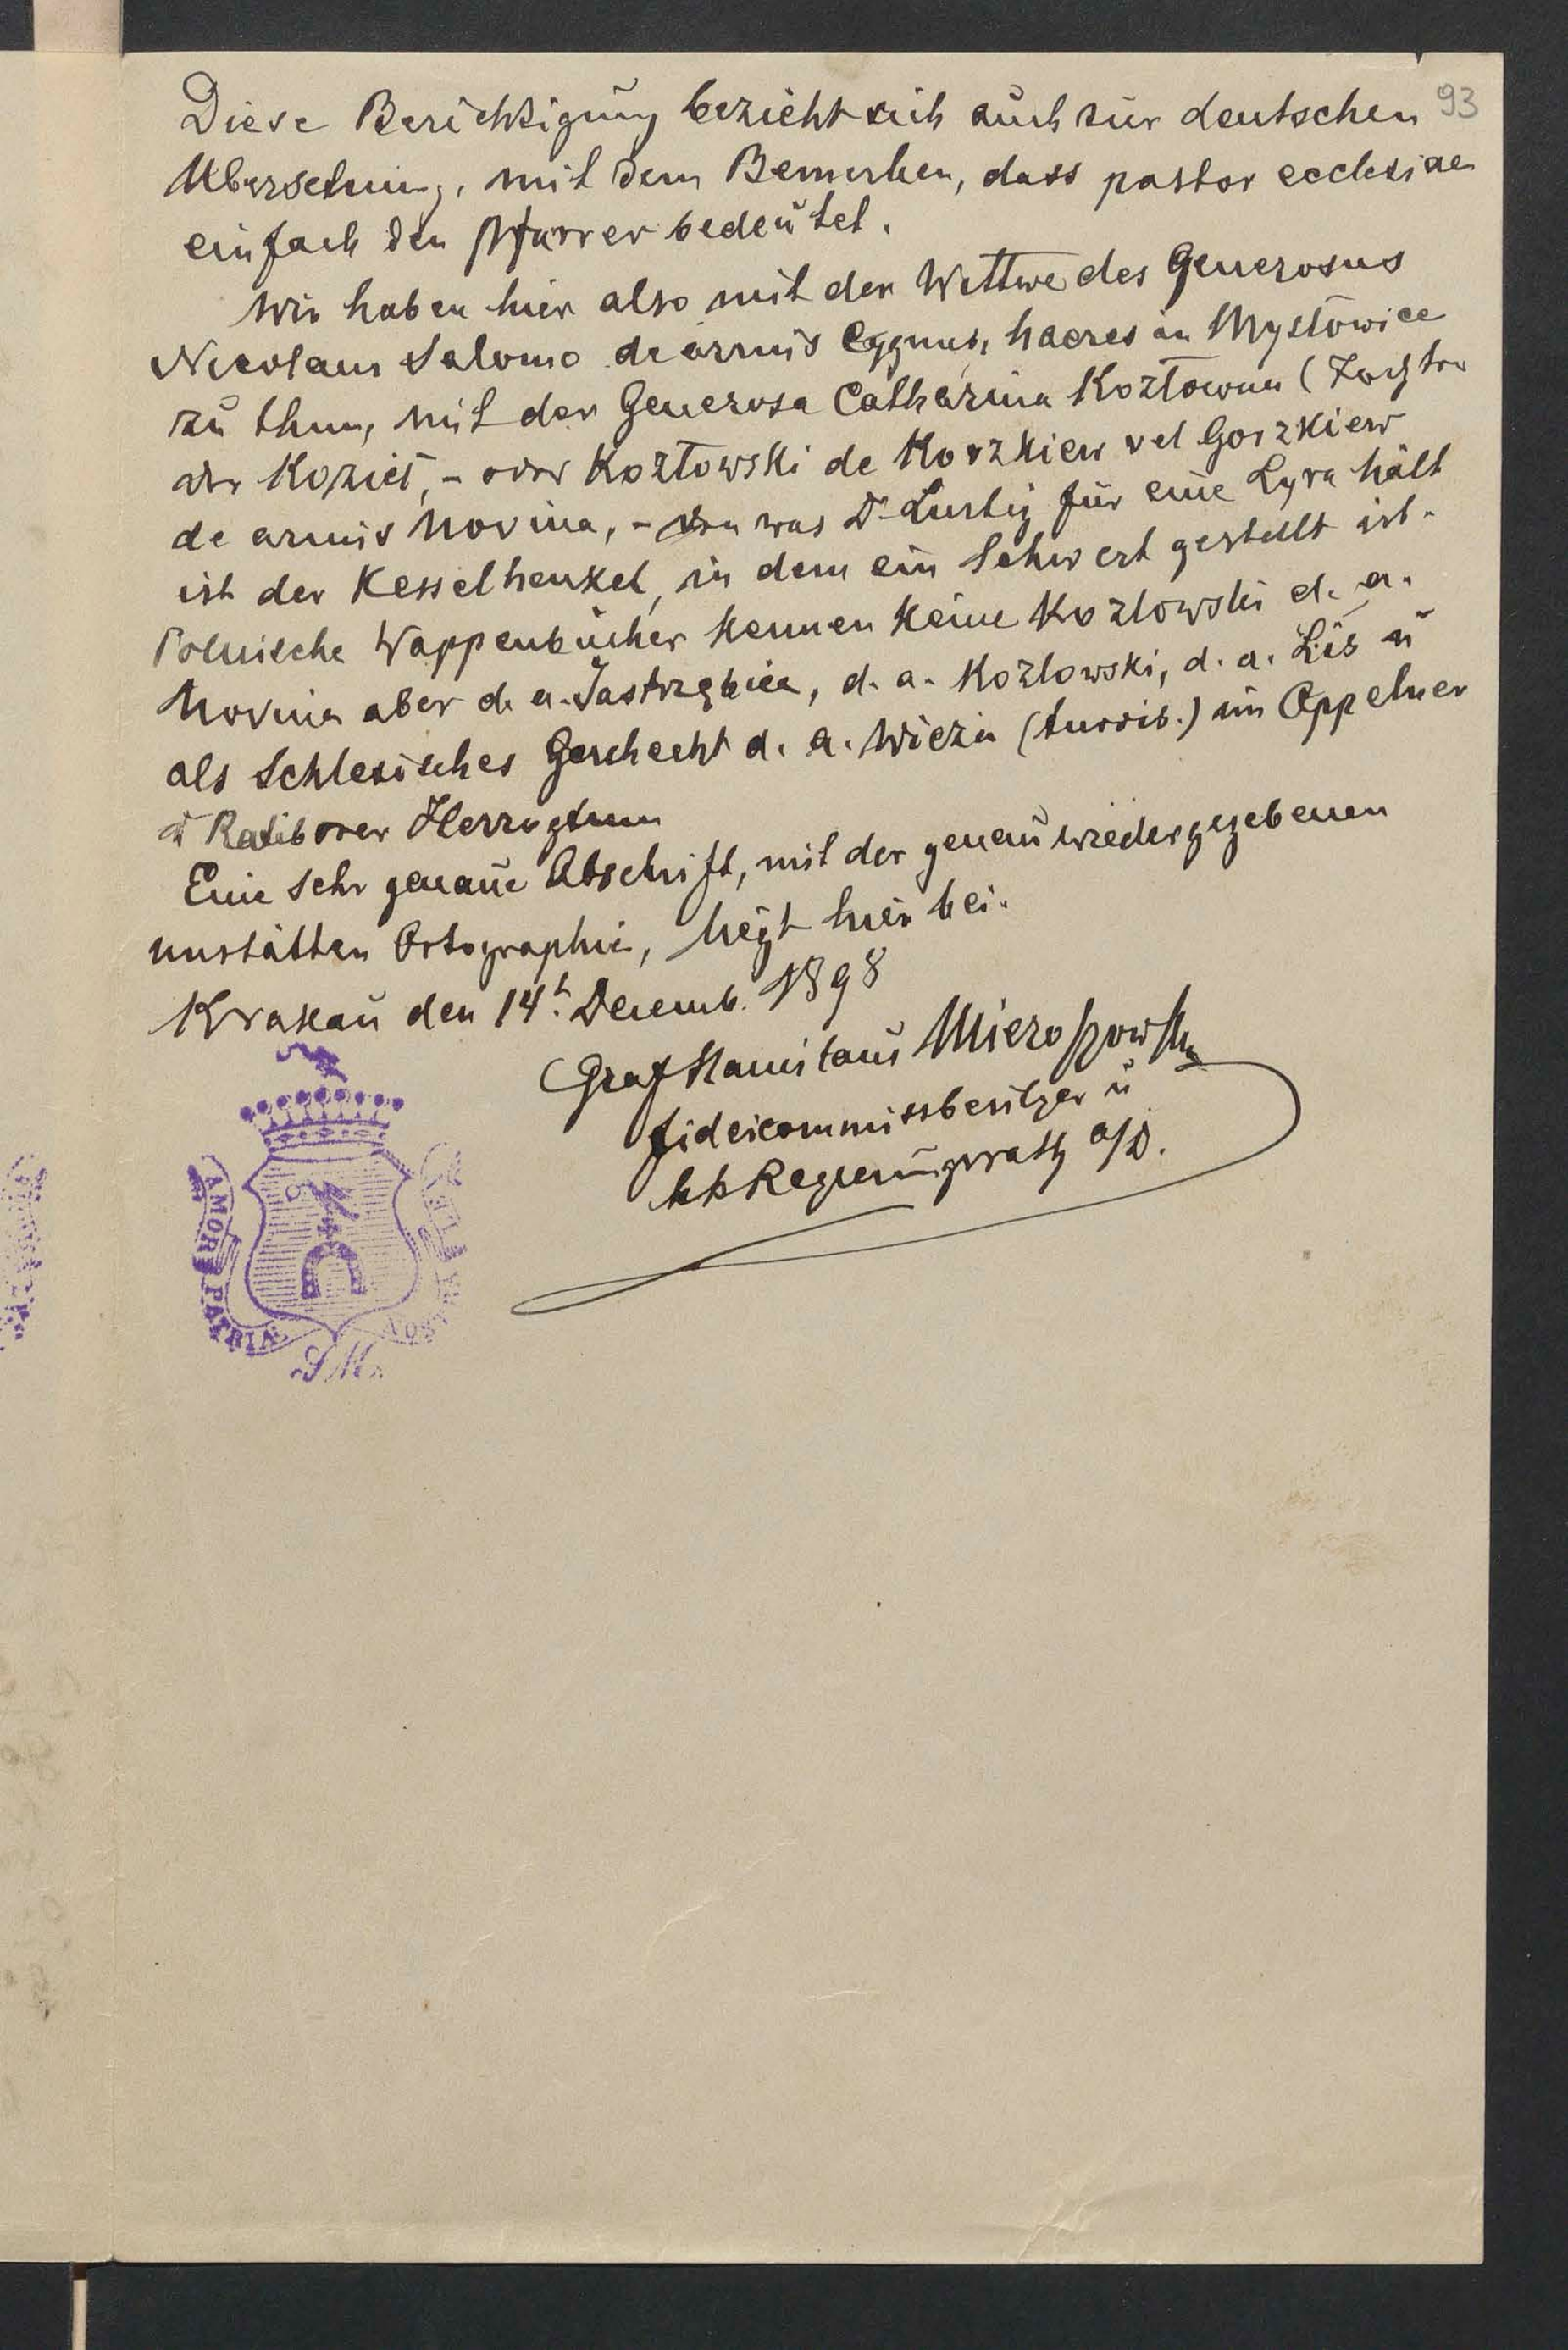 93
Diese Berichtigung bezieht sich auch zur deutschen
Übersetzung, mit dem Bemerken, dass pastor ecclesiae
einfach den Pfarrer bedeutet.
Wir haben hier also mit der Wittwe des Generosus
Nicolaus Salomo de armis Cygnus, haeres in Mysłowice
zu thun, mit der Generosa Catharina Kozłowna (Tochter
der Kozieł, - oder Kozłowski de Korzkiew vel Gorzkiew
de armis Novina, - was Dr Lustig für eine Lyra hält
ist der Kesselhenkel, in dem ein Schwert gestellt ist.
Polnische Wappenbücher kennen keine Kozlowski d. a.
Novina aber d. a. Jastrzębiec, d. a. Kozlowski, d. a. Lis ū
als Schlesisches Geschecht d. a. Wieża (turris.) im Oppelner
ū Ratiborer Herzogtum
Eine sehr genaue Abschrift, mit der genau wiedergegebenen
unstätten Ortographie, liegt hier bei.
Krakau den 14t Decemb. 1898
Graf Stanislaus Mieroszowsky
Fideicommissbesitzer ū
kk Regierungsrath a/D.
AMOR PATRIÆ
NOSTRA LEX
SM.